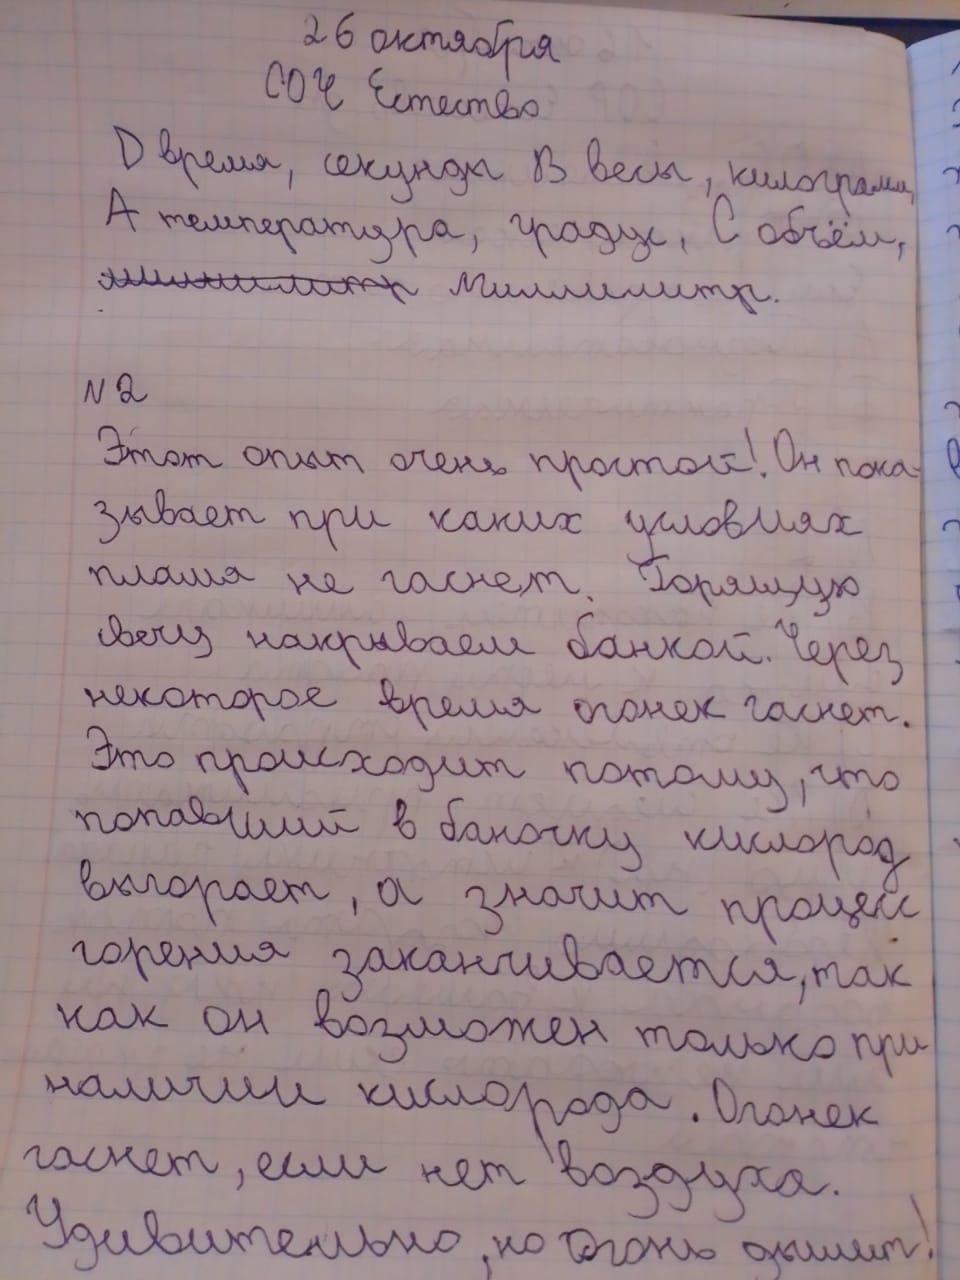 26 октября
СОЧ Естество
D время, секунды В весы, килограмм,
А температура, градус, С объём,
миллилитр Миллилитр.
N2
Этот опыт очень простой! Он пока-
зывает при каких условиях
пламя не гаснет. Горящую
свечу накрываем банкой. Через
некоторое время огонек гаснет.
Это происходит потому, что
попавший в баночку кислород
выгорает, а значит процесс
горения заканчивается, так
как он возможен только при
наличии кислорода. Огонек
гаснет, если нет воздуха.
Удивительно, но огонь дышит!